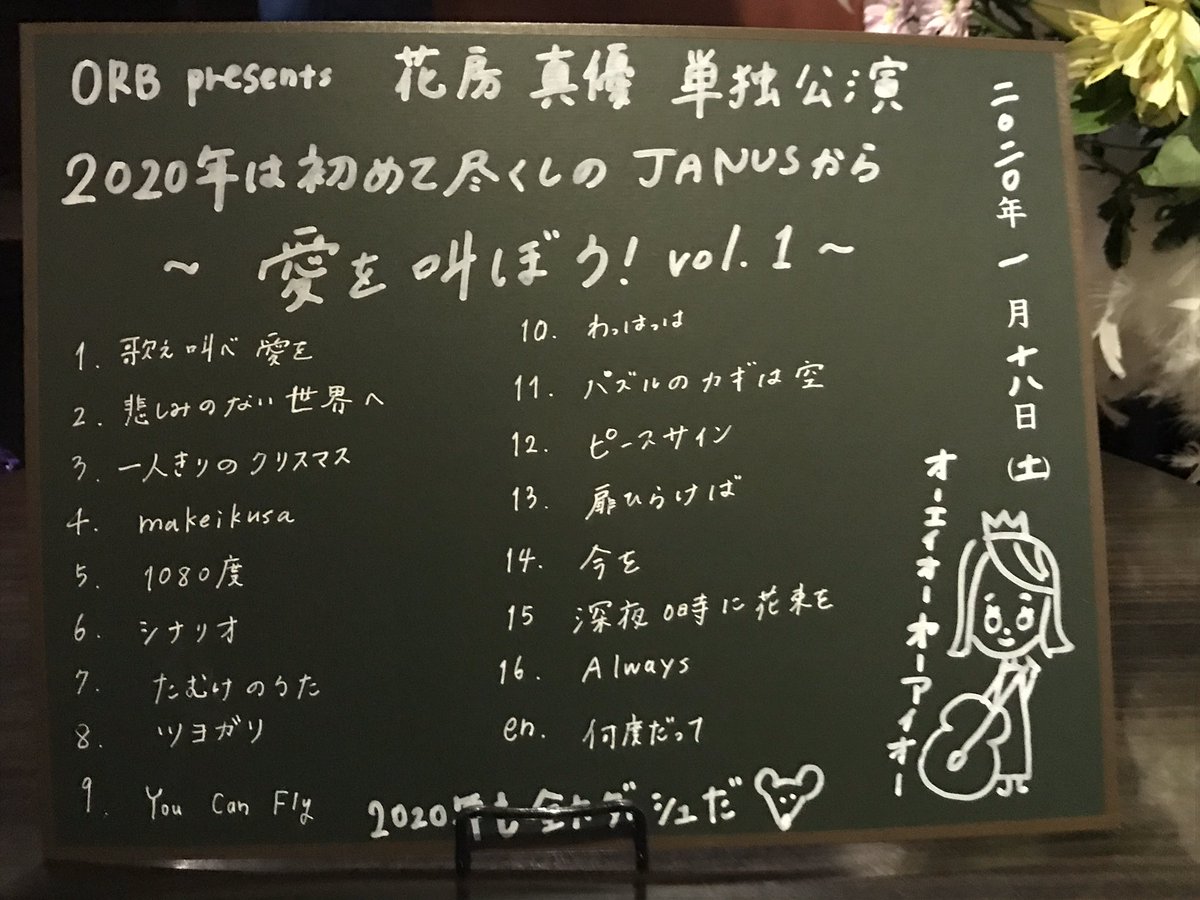 ORB presents 花房 真優 単独公演
2020年は初めて尽くしの JANUSから
~ 愛を叫ぼう! vol.1 ~
1. 歌え叫べ 愛を
2. 悲しみのない世界へ
3. 一人きりのクリスマス
4. makeikusa
5. 1080度
6. シナリオ
7. たむけのうた
8. ツヨガリ
9. You Can Fly
10. わっはっは
11. パズルのカギは空
12. ピースサイン
13. 扉ひらけば
14. 今を
15 深夜0時に花束を
16. Always
en. 何度だって
2020年も シュだ
二〇二〇年 一月十八日(土)
オーエィオー オーアィオー